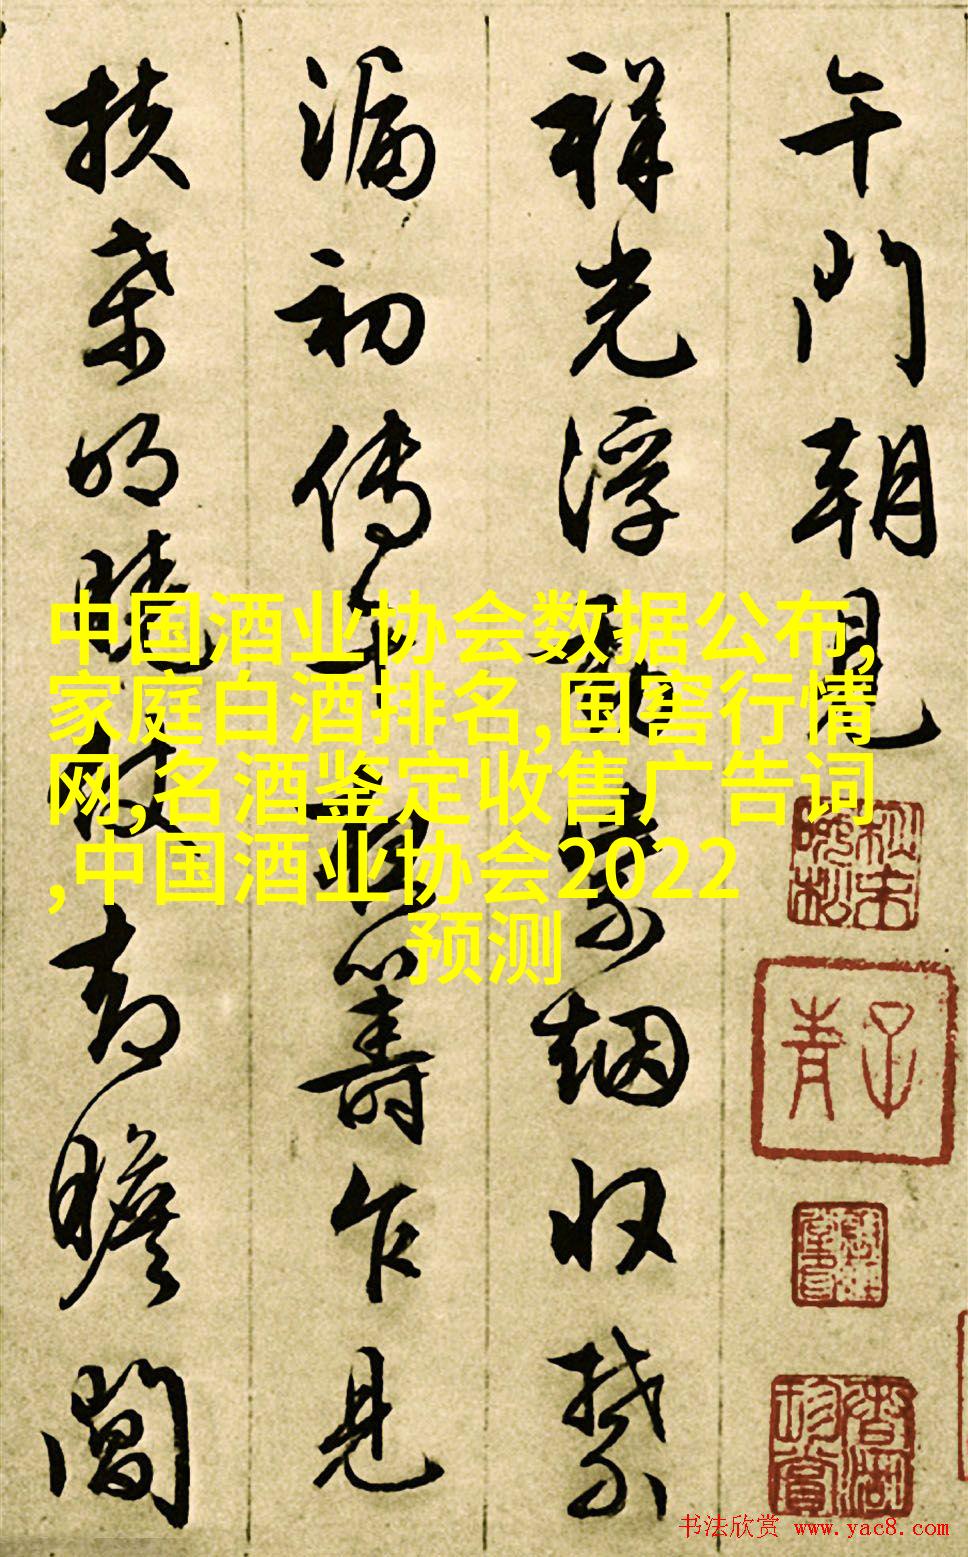 午門朝見
祥光浮紫烟収禁
漏初传籌乍見
扶桑明曉瞻閶
子青
中国酒业协会数据公布,
家庭白酒排名,国窖行情
网,名酒鉴定收售广告词
,中国酒业协会2022
预测
书法欣赏 www.yac8.com